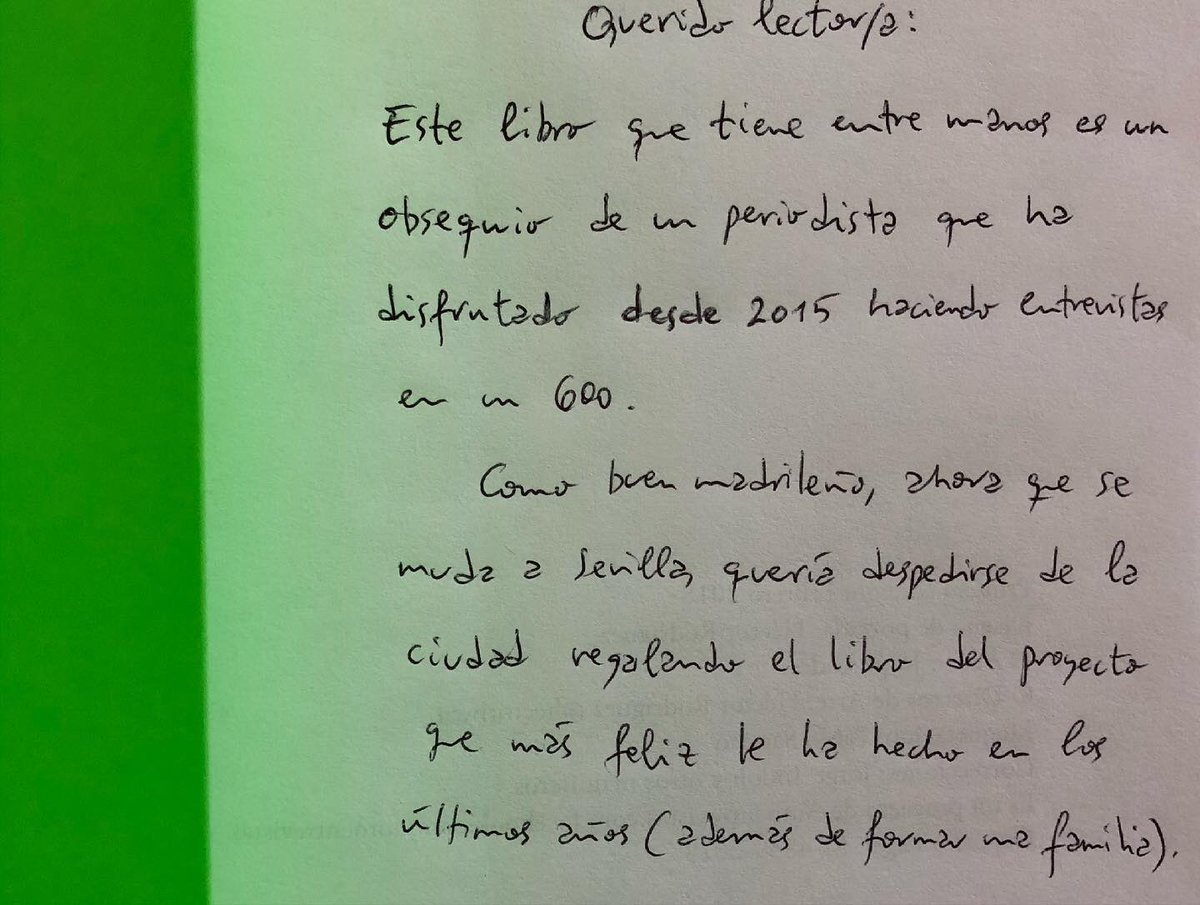 Querido lector/a:
Este libro que tiene entre manos es un
obsequio de un periodista que ha
disfrutado desde 2015 haciendo entrevistas
en un 600.
Como buen madrileño, ahora que se
muda a Sevilla, quería despedirse de la
ciudad regalando el libro del proyecto
que más feliz le ha hecho en los
últimos años (además de formar una familia).